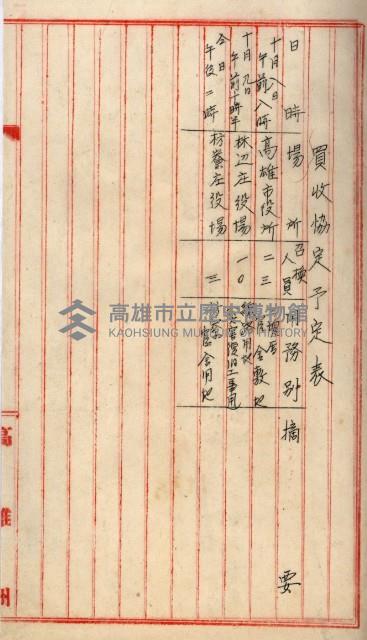 買收協定予定表
日時 場所 召換人員 用務別 摘要
十月八日
午前八時 高雄市役所 二三 官舍敷地
十月九日
午前十時半 林辺庄役場 一〇
仝日
午後二時 枋寮庄役場 三 官舍用地
高雄州
高雄市立歷史博物館
KAOHSIUNG MUSEUM OF HISTORY